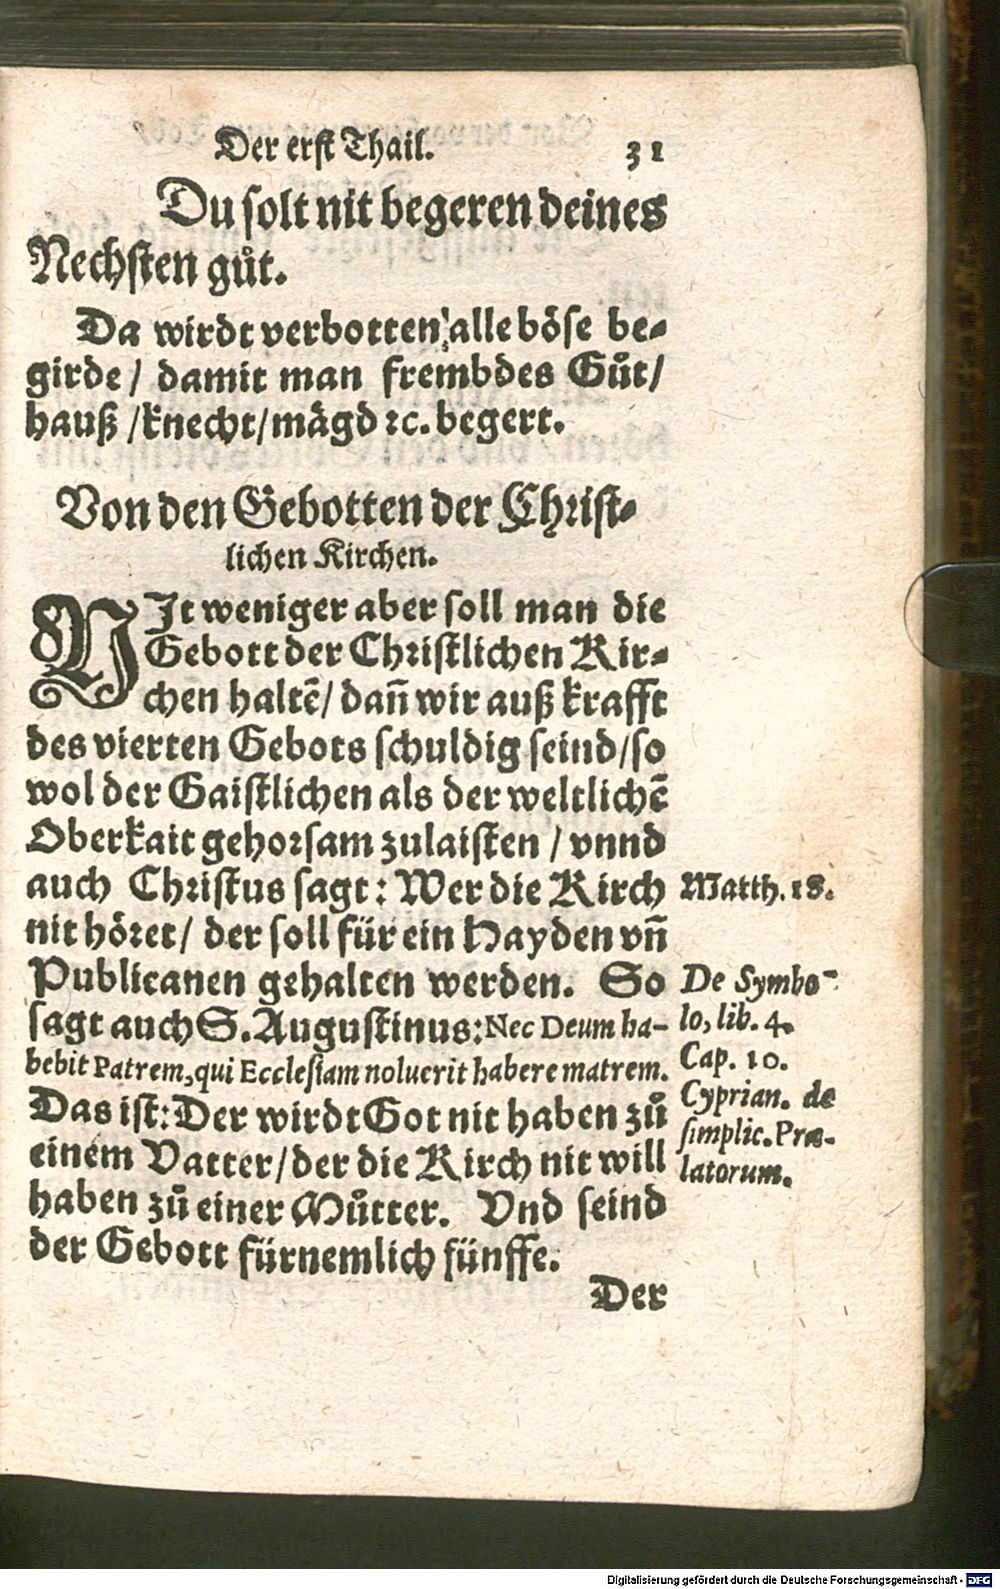 Der erst Thail. 31
Du solt nit begeren deines
Nechsten gůt.
Da wirdt verbotten alle böse be-
girde / damit man frembdes Gůt /
hauß / knecht / mägd ꝛc. begert.
Von den Gebotten der Christ-
lichen Kirchen.
NIt weniger aber soll man die
Gebott der Christlichen Kir-
chen haltē / dañ wir auß krafft
des vierten Gebots schuldig seind / so
wol der Gaistlichen als der weltlichē
Oberkait gehorsam zulaisten / vnnd
auch Christus sagt: Wer die Kirch
nit höret / der soll für ein Hayden vñ
Publicanen gehalten werden. So
sagt auch S. Augustinus: Nec Deum ha-
bebit Patrem, qui Ecclesiam noluerit habere matrem.
Das ist: Der wirdt Got nit haben zů
einem Vatter / der die Kirch nit will
haben zů einer Můtter. Vnd seind
der Gebott fürnemlich fünffe.
Der
Matth. 18.
De Symbo-
lo, lib. 4.
Cap. 10.
Cyprian. de
simplic. Præ-
latorum.
Digitalisierung gefördert durch die Deutsche Forschungsgemeinschaft - DFG